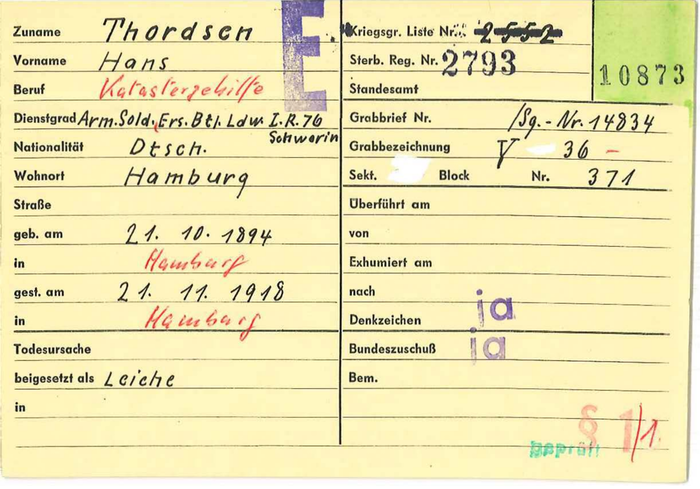 Zuname Thordsen
Vorname Hans
Beruf Katastergehilfe
Dienstgrad Arm.Sold. Ers. Btl. Ldw. I. R. 76
Schwerin
Nationalität Dtsch.
Wohnort Hamburg
Straße
geb. am 21. 10. 1894
in Hamburg
gest. am 21. 11. 1918
in Hamburg
Todesursache
beigesetzt als Leiche
in
E
Kriegsgr. Liste Nr.
Sterb. Reg. Nr. 2793
Standesamt
10873
Grabbrief Nr. /Sg.-Nr. 14834
Grabbezeichnung V 36 –
Sekt. Block Nr. 371
Überführt am
von
Exhumiert am
nach
Denkzeichen ja
Bundeszuschuß ja
Bem.
§ 1/1.
geprüft